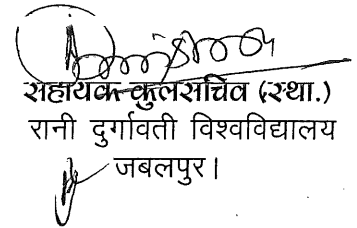 सहायक कुलसचिव (स्था.)
रानी दुर्गावती विश्वविद्यालय
जबलपुर।